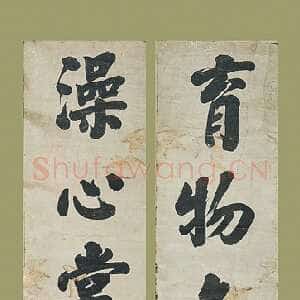 育物
澡心堂
Shufawang.CN